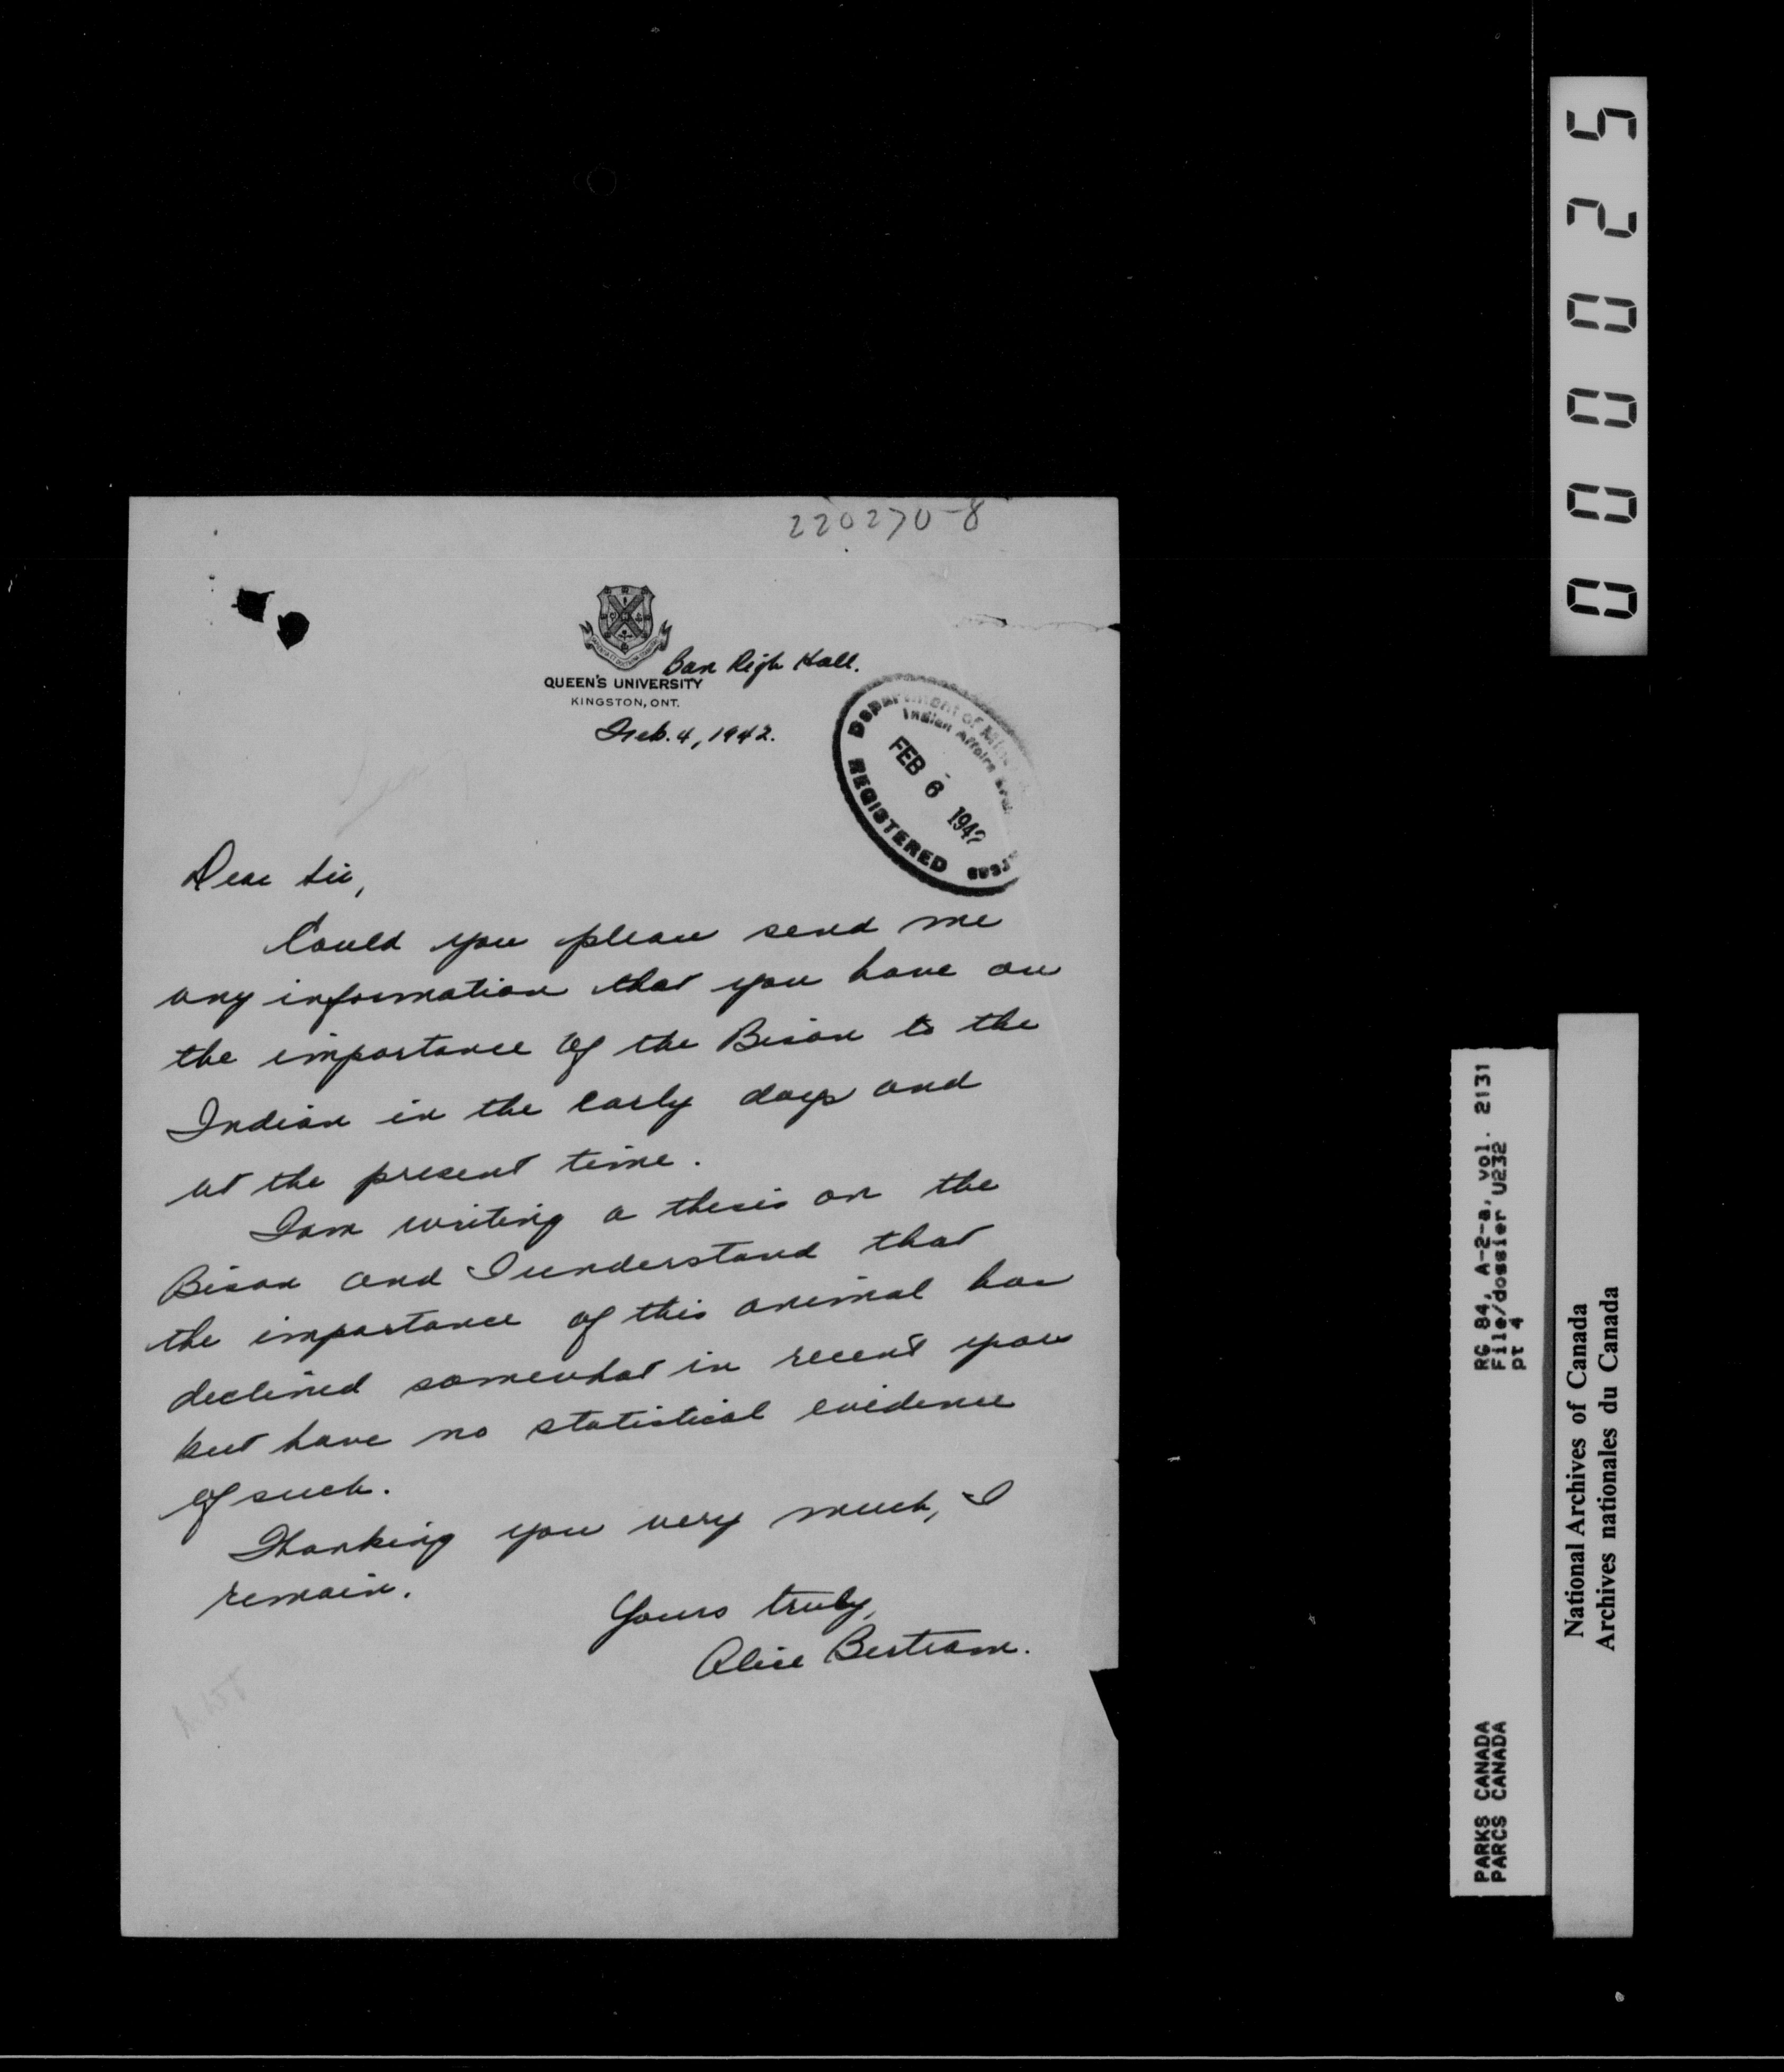 220270-8
Ban Righ Hall.
QUEEN'S UNIVERSITY
KINGSTON, ONT.
Feb. 4, 1942.
Department of Mines
Indian Affairs
FEB 6 1942
REGISTERED
Dear Sir,
Could you please send me
any information that you have on
the importance of the Bison to the
Indian in the early days and
at the present time.
I am writing a thesis on the
Bison and I understand that
the importance of this animal has
declined somewhat in recent years
but have no statistical evidence
of such.
Thanking you very much, I
remain.
Yours truly,
Alice Bertram.
000025
RG 84, A-2-a, vol. 2131
File/dossier U232
pt 4
PARKS CANADA
PARCS CANADA
National Archives of Canada
Archives nationales du Canada